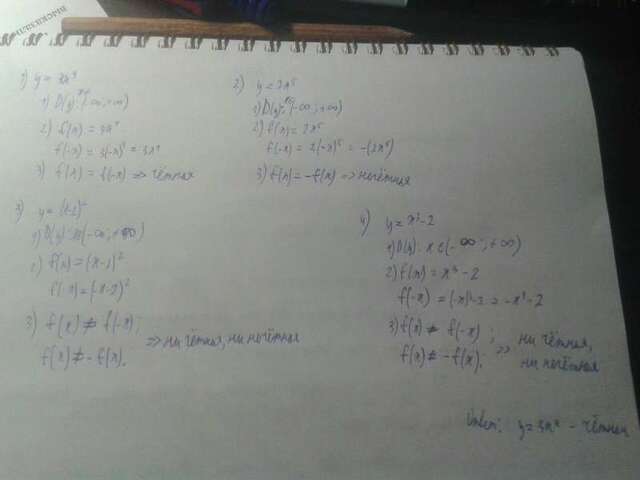 1) y = 3x⁴
1) D(y): x∈(-∞; +∞)
2) f(x) = 3x⁴
f(-x) = 3(-x)⁴ = 3x⁴
3) f(x) = f(-x) => чётная
2) y = 2x⁵
1) D(y): x∈(-∞; +∞)
2) f(x) = 2x⁵
f(-x) = 2(-x)⁵ = -(2x⁵)
3) f(x) = -f(x) => нечётная
3) y = (x-2)²
1) D(y): x∈(-∞; +∞)
2) f(x) = (x-2)²
f(-x) = (-x-2)²
3) f(x) ≠ f(-x);
f(x) ≠ -f(x). => ни чётная, ни нечётная
4) y = x³-2
1) D(y): x∈(-∞; +∞)
2) f(x) = x³-2
f(-x) = (-x)³-2 = -x³-2
3) f(x) ≠ f(-x);
f(x) ≠ -f(x). => ни чётная,
ни нечётная
Ответ: y = 3x⁴ - чётная